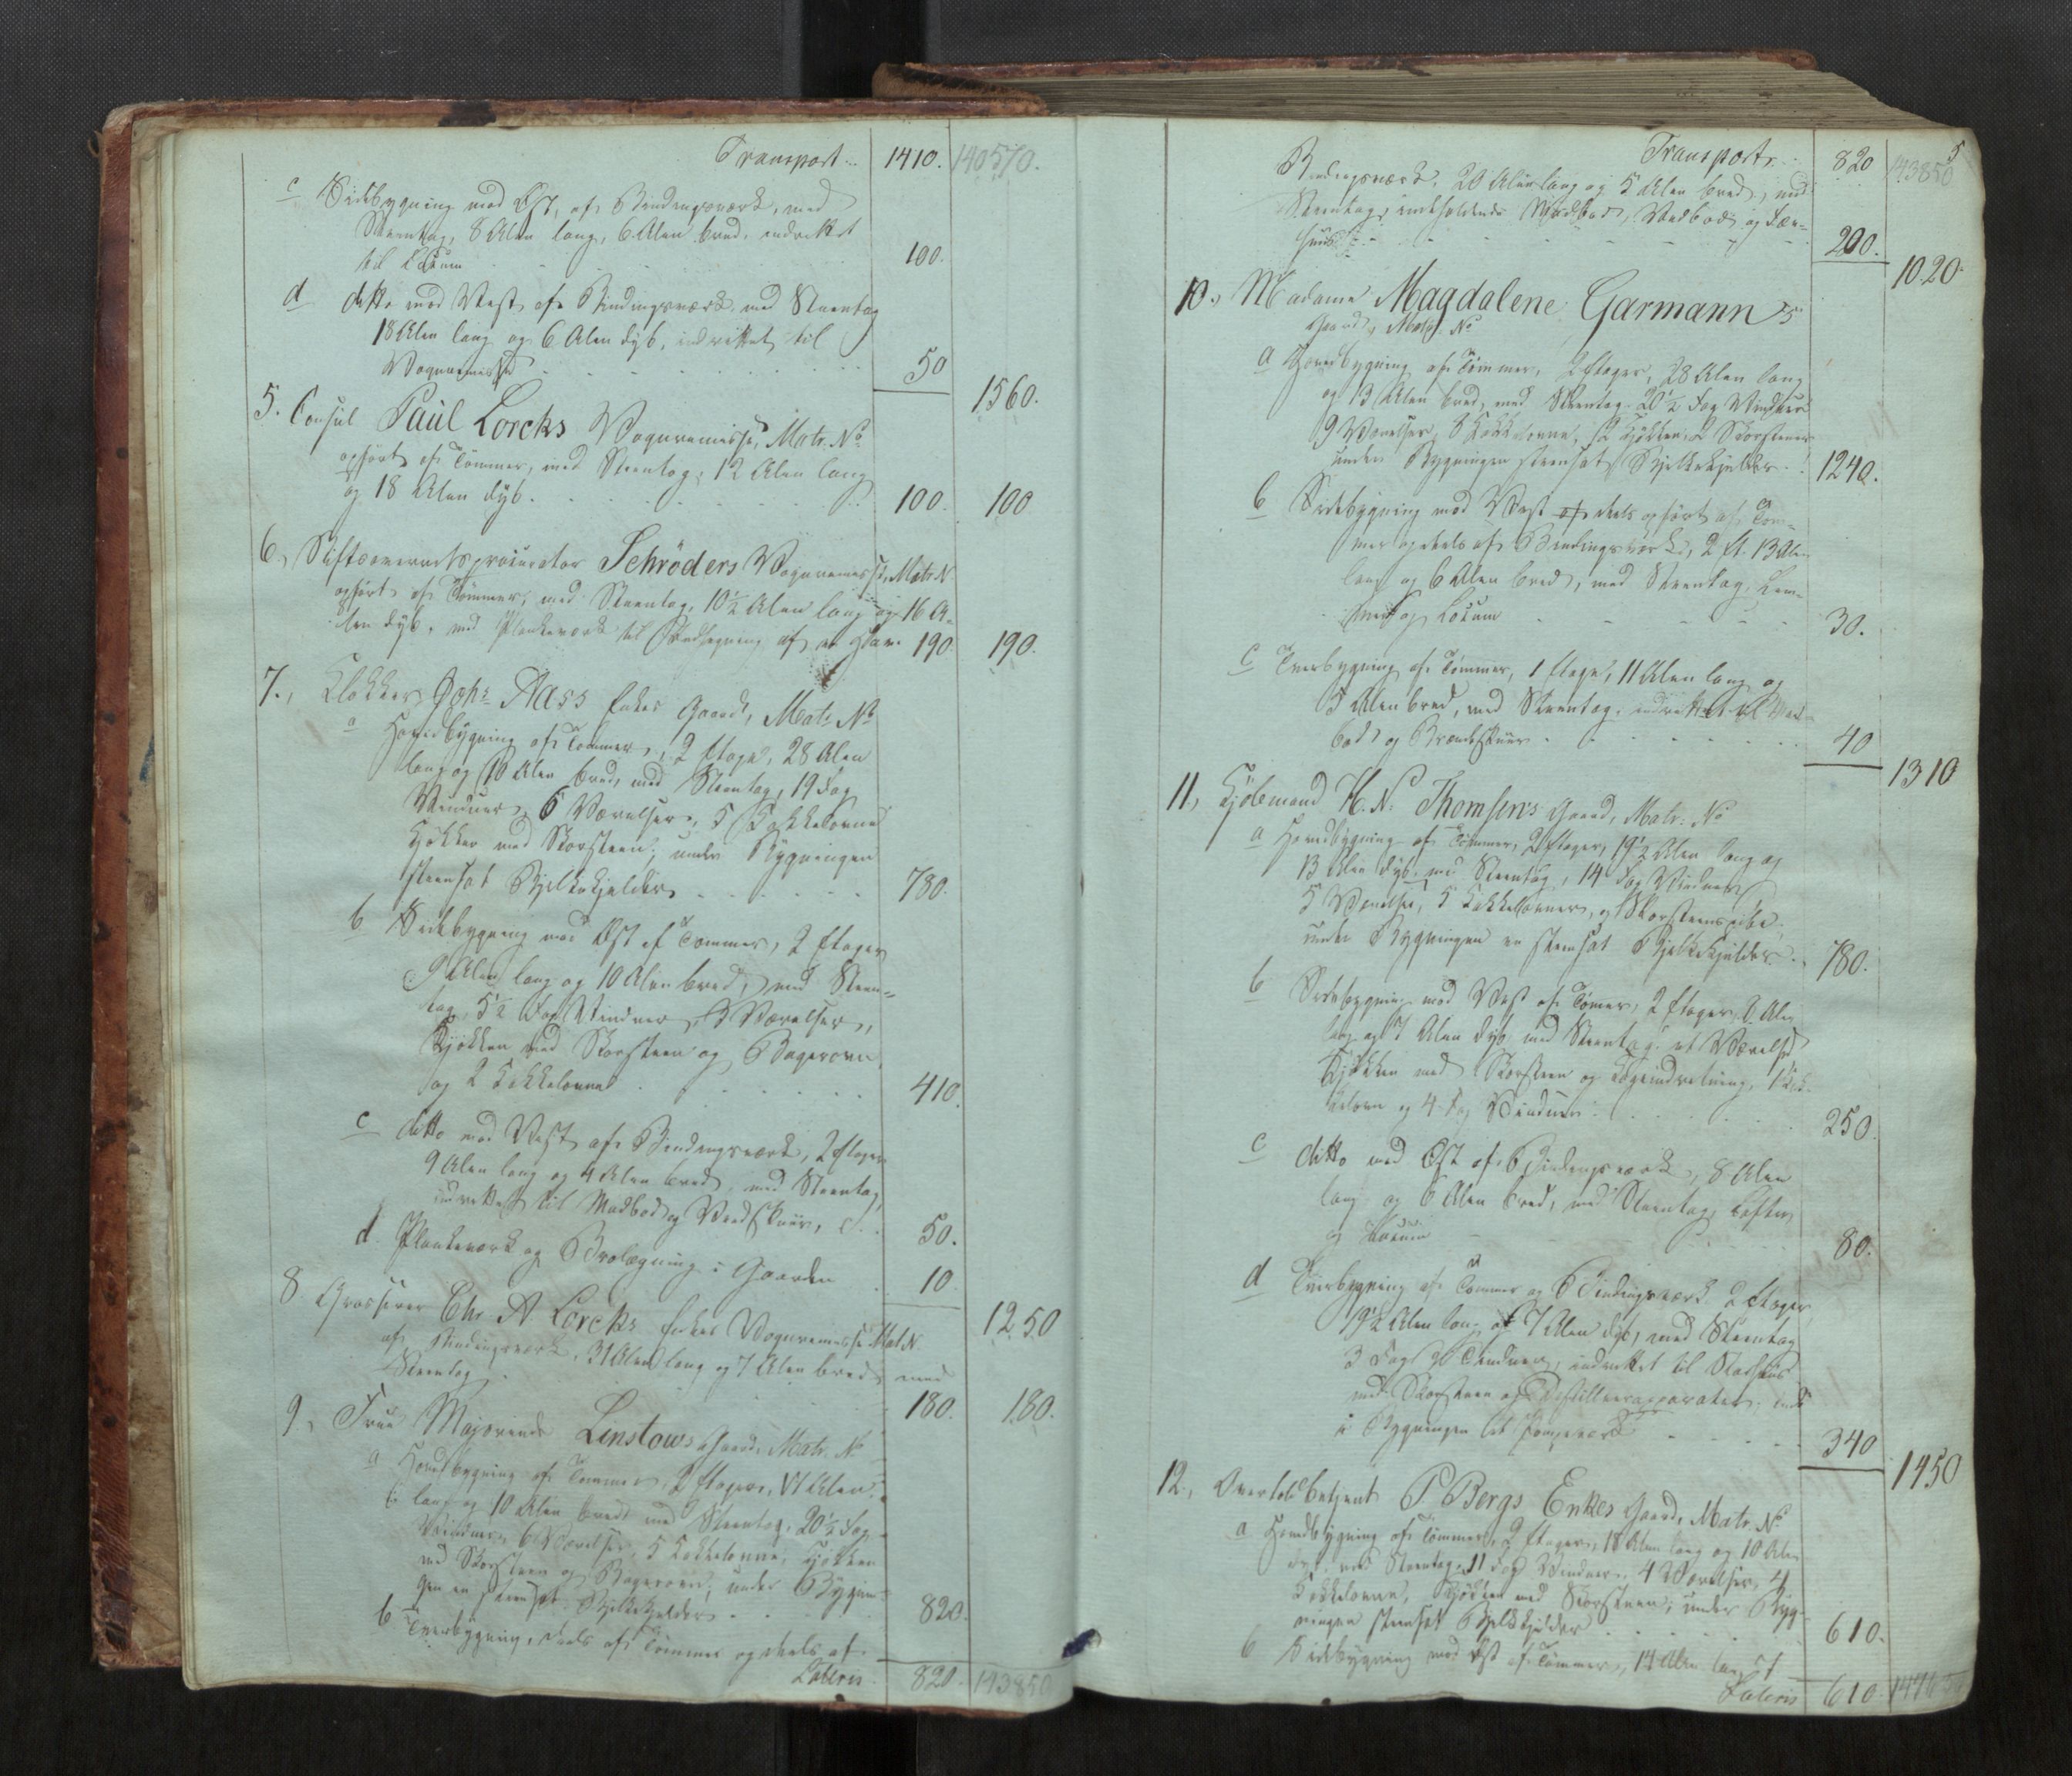 Transport 1410. 140570.
c Sidebygning mod Øst, af Bindingsværk, med
Steentag, 8 Alen lang, 6 Alen bred, indrettet
til Locum 100.
d ditto mod Vest af Bindingsværk med Steentag
18 Alen lang og 6 Alen dyb, indrettet til
Vognremisse 50
1560.
5. Consul Paul Lorcks Vognremisse, Matr. No
opført af Tømmer, med Steentag, 12 Alen lang
og 18 Alen dyb. 100. 100
6. Stiftsoverretsprocurator Schröders Vognremisse, Matr. N
opført af Tømmer, med Steentag, 10½ Alen lang og 16 A-
len dyb, med Plankeværk til af en Have 190. 190.
7., Klokker Johs Aass Enkes Gaard, Matr. No
a Hovedbygning af Tømmer, 2 Etager, 28 Alen
lang og 10 Alen bred, med Steentag, 19 Fag
Vinduer, 6 Værelser, 5 Kakkelovne
Kjøkken med Skorsteen; under Bygningen
steensat Bjelkekjelder 780.
b Sidebygning mod Øst af Tømmer, 2 Etager
9 Alen lang og 10 Alen bred, med Steen-
tag, 5½ Fag Vinduer, 3 Værelser,
Kjøkken med Skorsteen og Bagerovn
og 2 Kakkelovne 410.
c ditto mod Vest af Bindingsværk, 2 Etager
9 Alen lang og 4 Alen bred, med Steentag,
indrettet til Madbod og Vedskuur, 50.
d Plankeværk og Brolægning i Gaarden 10.
1250
8 Grosserer Chr. A Lorcks Enkes Vognremisse Mat N.
af Bindingsværk, 31 Alen lang og 7 Alen bred med
Steentag 180. 180.
9., Frue Majorinde Linstows Gaard, Matr. No
a Hovedbygning af Tømmer 2 Etager, Alen
lang og 10 Alen bred med Steentag, 20½ Fag
Vinduer, 6 Værelser, 5 Kakkelovne, Kjøkken
med Skorsteen og Bagerovn; under Bygnin-
gen en steensat Bjelkekjelder 820.
b Tverbygning, deels af Tømmer og deels af
Lateris 820. 143850
Transport 820 143850 5
Bindingsværk, 20 Alen lang og 5 Alen bred, med
Steentag, indeholdende Madbod, Vedbod og Fæe-
huus 200.
1020.
10., Madame Magdalene Garmanns
Gaard, Matr. No
a Hovedbygning af Tømmer, 2 Etager, 28 Alen lang
og 13 Alen bred, med Steentag. 20½ Fag Vinduer
9 Værelser, 8 Kakkelovne, 2 Kjøkken, 2 Skorstene
under Bygningen steensat Bjelkekjelder 1240.
b Sidebygning mod Vest deels opført af Tøm-
mer og deels af Bindingsværk, 2 Et. 13 Alen
lang og 6 Alen bred, med Steentag,
og Locum 30.
c Tverbygning af Tømmer, 1 Etage, 11 Alen lang og
5 Alen bred, med Steentag, indrettet til Mad-
bod og Brændeskuur 40
1310
11., Kjøbmand H. N. Thomsens Gaard, Matr. No
a Hovedbygning af Tømmer, 2 Etager, 19½ Alen lang og
13 Alen dyb, med Steentag, 14 Fag Vinduer
5 Værelser, 5 Kakkelovner, og Skorsteenspibe;
under Bygningen en steensat Bjelkekjelder 780.
b Sidebygning mod Vest af Tømmer, 2 Etager, 8 Alen
lang og 7 Alen dyb med Steentag, et Værelse,
Kjøkken med Skorsteen og Bageindretning, 1 Kak-
kelovn og 4 Fag Vinduer 250.
c ditto mod Øst af Bindingsværk, 8 Alen
lang og 6 Alen bred, med Steentag,
og Locum 80.
d Tverbygning af Tømmer og Bindingsværk 2 Etager,
19½ Alen lang og 7 Alen dyb, med Steentag
3 Fag Vinduer, indrettet til
med Skorsteen og Destilleerapparater;
i Bygningen let Pompeværk 340
1450
12., Overtoldbetjent P Bergs Enkes Gaard, Matr. No
a Hovedbygning af Tømmer, 2 Etager, 18 Alen lang og 10 Alen
dyb med Steentag, 11 Fag Vinduer, 4 Værelser, 4
Kakkelovne, Kjøkken med Skorsteen; under Byg-
ningen steensat Bjelkekjelder 610.
b Sidebygning mod Øst af Tømmer, 14 Alen lang
Lateris 610.